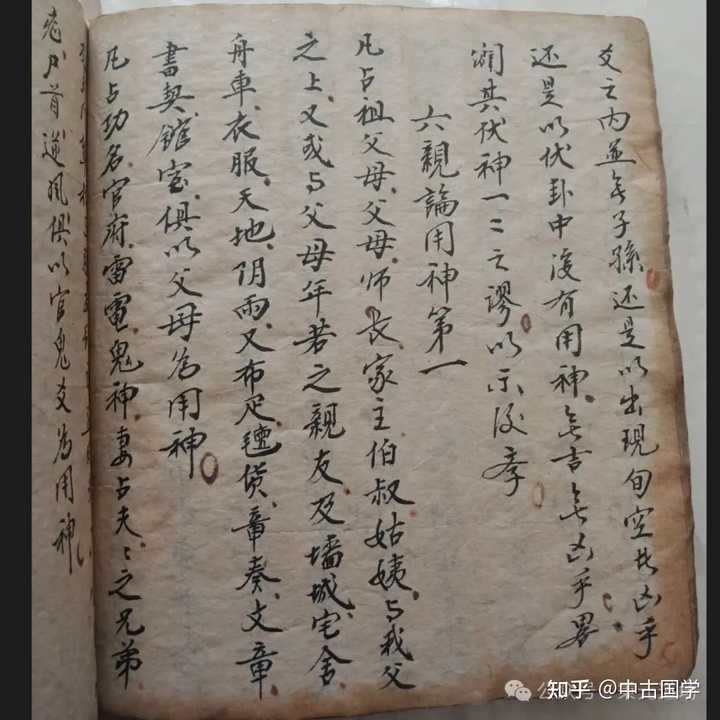 爻之内並無子孫还是以出現旬空者凶乎
还是以伏卦中没有用神無吉無凶乎畧
闢其伏神一二之謬以示後孝
六親論用神第一
凡占祖父母父母師長家主伯叔姑姨与我父
之上又或与父母年若之親友及墻城宅舍
舟車衣服天地阴雨又布疋氊貨章奏文章
書契館室俱以父母為用神
凡占功名官府雷電鬼神妻占夫〻之兄弟
逆風俱以官鬼爻為用神
知乎 @中古国学